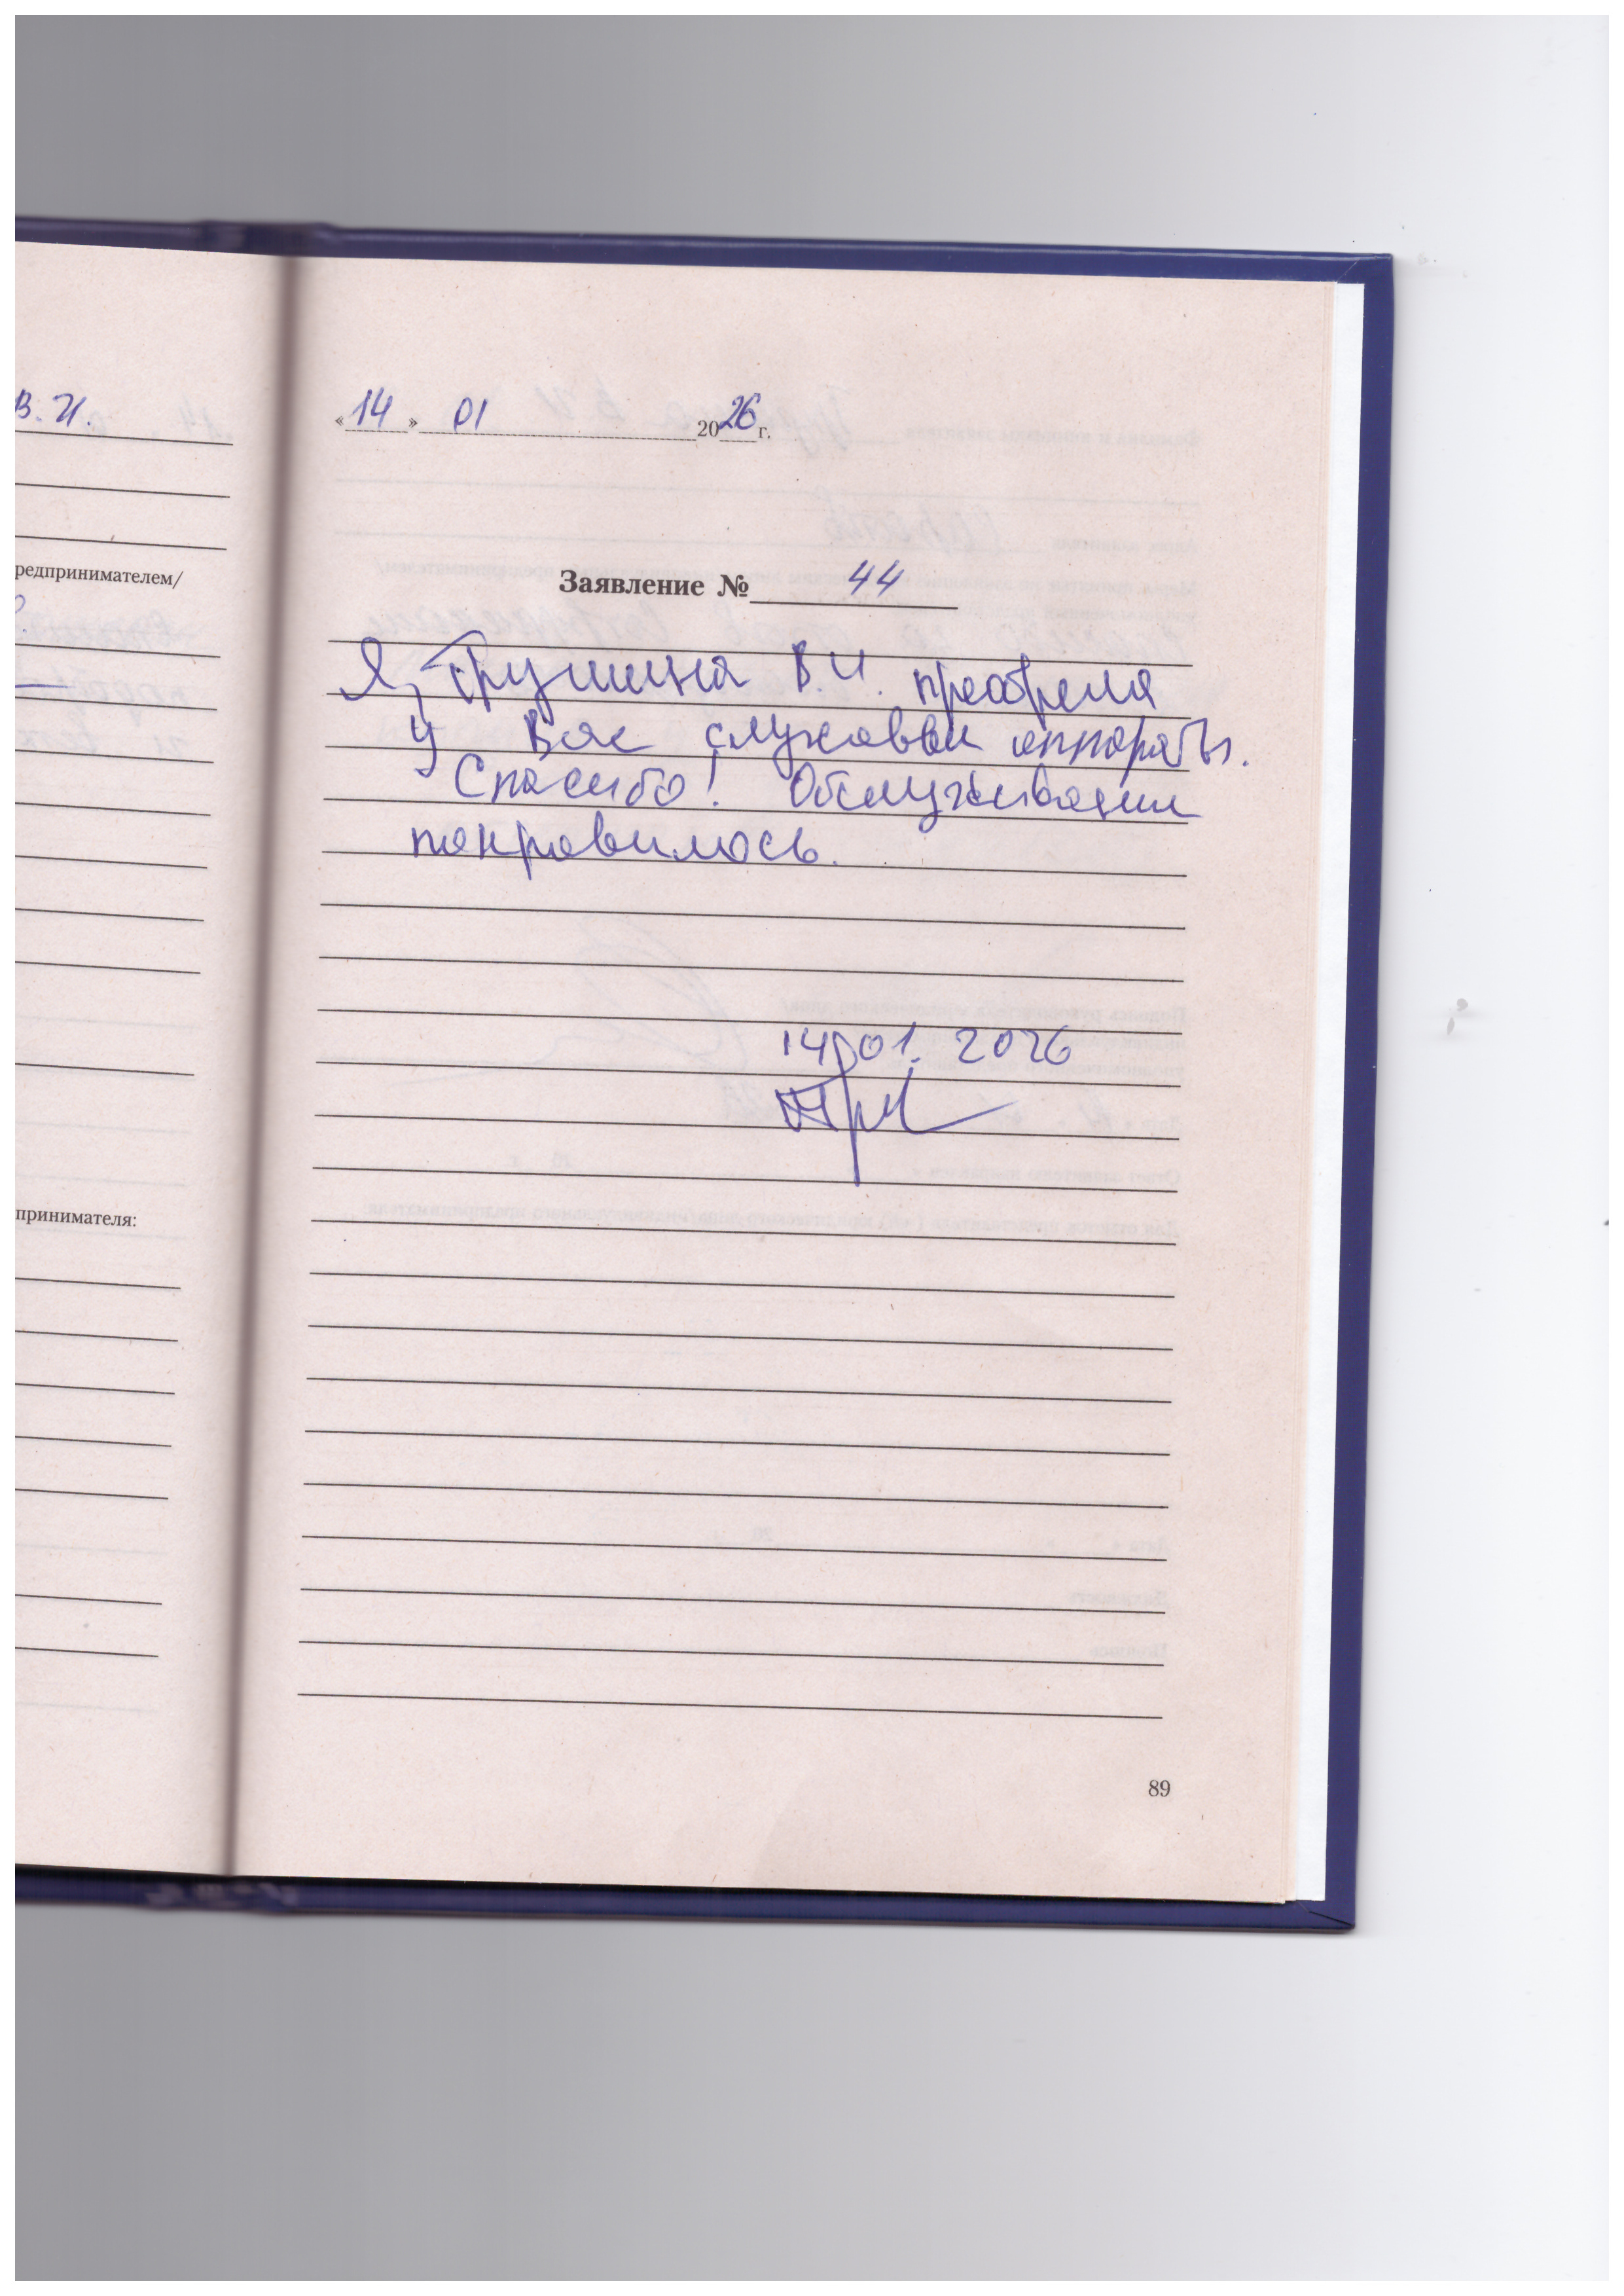 В. И.
редпринимателем/
принимателя:
«14» 01 2026 г.
Заявление № 44
Я, Трушина В.И. преобрела
у Вас слуховые аппараты.
Спасибо! Обслуживание
понравилось.
14.01.2026
89